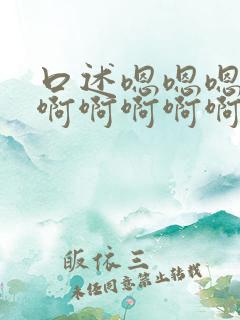 口述嗯嗯嗯
啊啊啊啊啊
皈依三
未经同意禁止转载